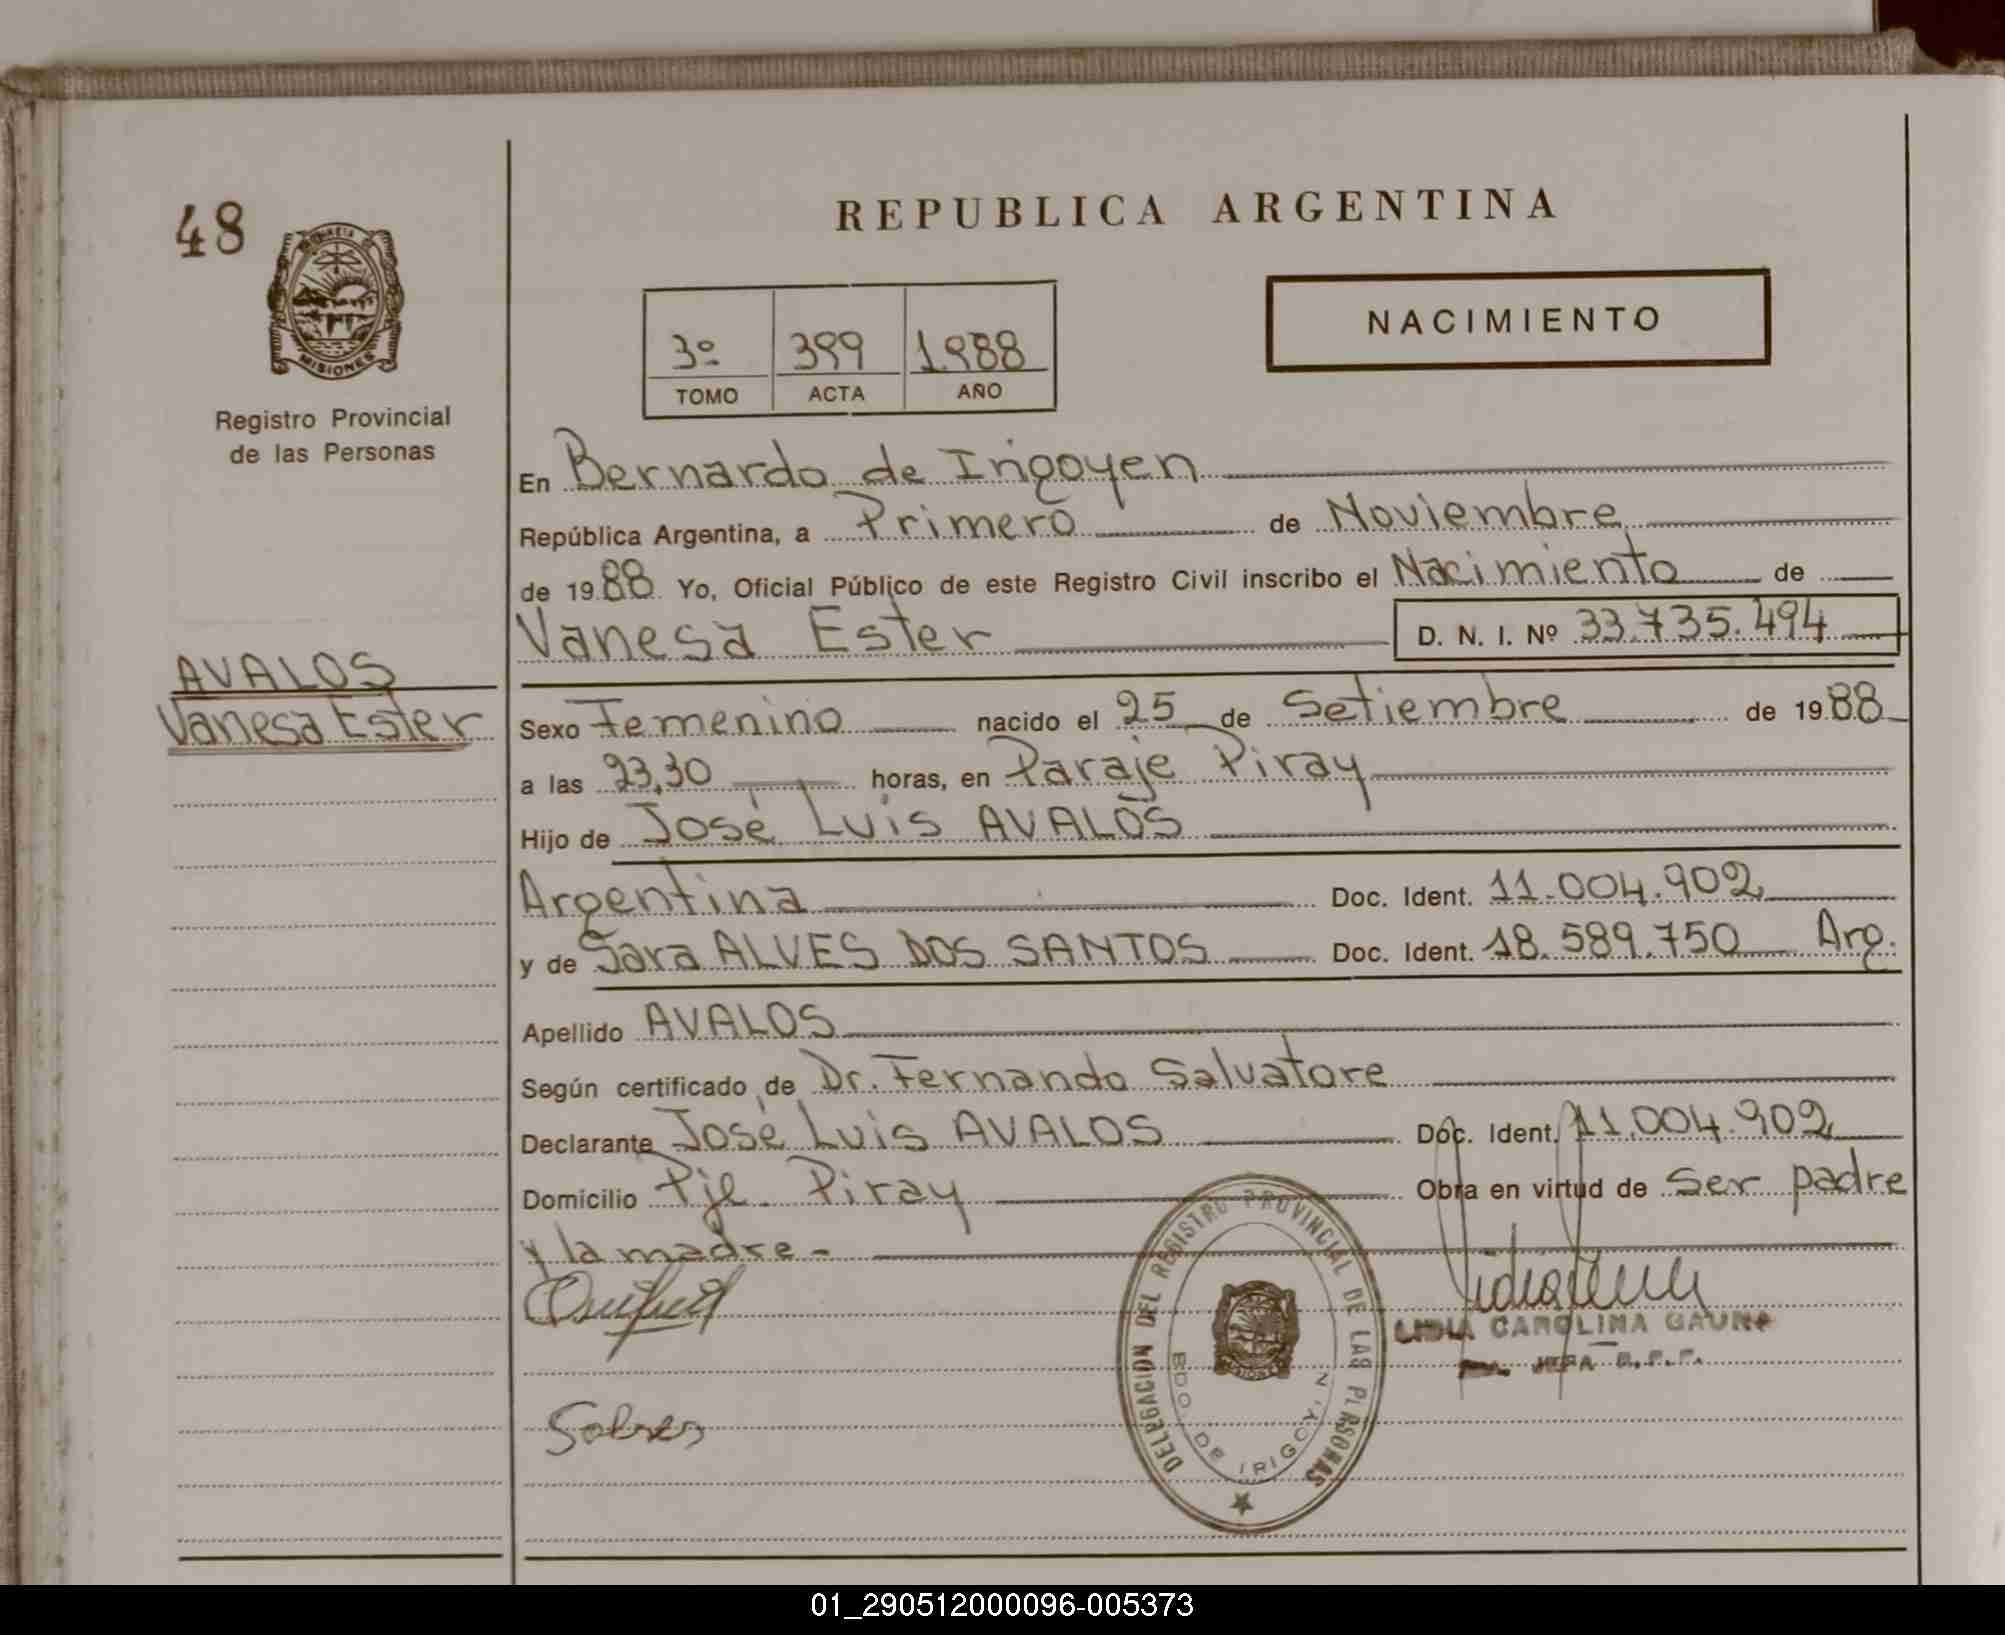 48
REPUBLICA ARGENTINA
NACIMIENTO
3º 399 1.988
TOMO ACTA AÑO
MISIONES
Registro Provincial
de las Personas
En Bernardo de Irigoyen
República Argentina, a Primero de Noviembre
de 19 88 Yo, Oficial Público de este Registro Civil inscribo el Nacimiento de
Vanesa Ester D. N. I. Nº 33.735.494
AVALOS
Vanesa Ester
Sexo Femenino nacido el 25 de Setiembre de 19 88
a las 23,30 horas, en Paraje Piray
Hijo de José Luis AVALOS
Argentina Doc. Ident. 11.004.902
y de Sara ALVES DOS SANTOS Doc. Ident. 18.589.750 Arg.
Apellido AVALOS
Según certificado de Dr. Fernando Salvatore
Declarante José Luis AVALOS Doc. Ident. 11.004.902
Domicilio Pje. Piray Obra en virtud de ser padre
y la madre.-
DELEGACION DEL REGISTRO PROVINCIAL DE LAS PERSONAS
BDO. DE IRIGOYEN
LIDIA CAROLINA GAUNA
01_290512000096-005373